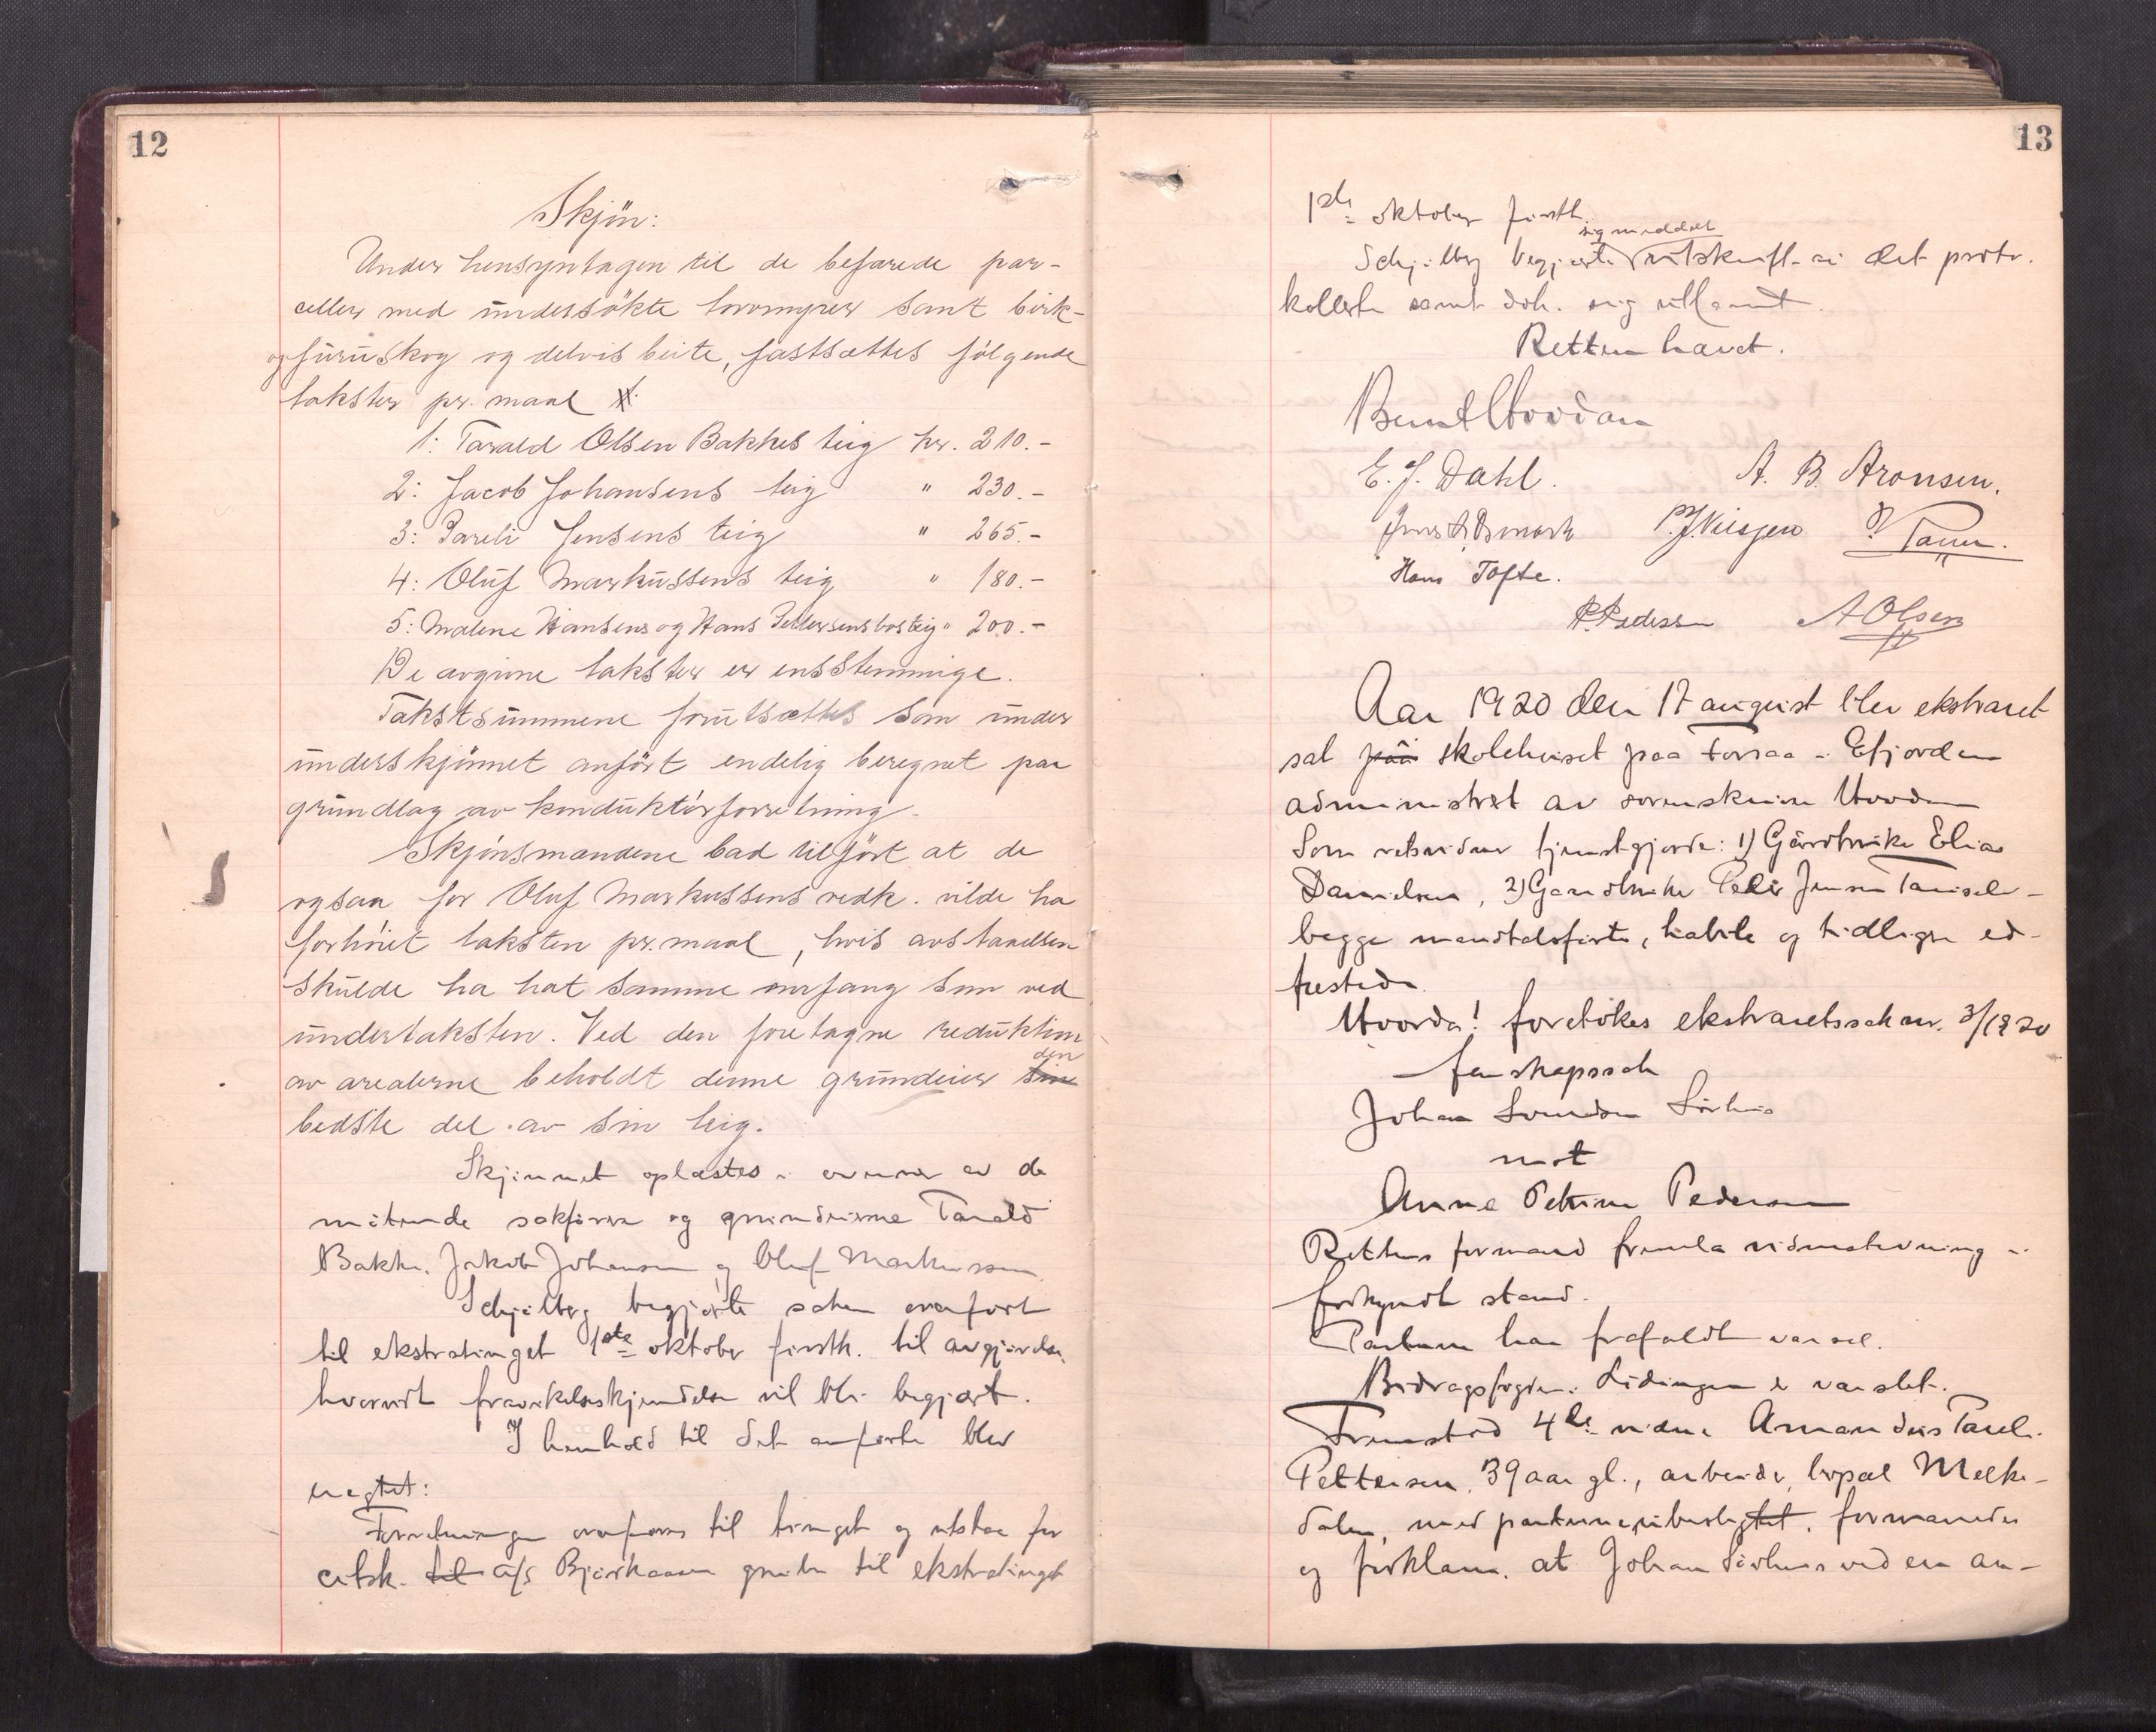 12
Skjön:
Under hensyntagen til de befarede par-
celler med undersökte torvmyrer samt birk-
og furuskog og delvis beite, fastsættes følgende
takster pr. maal
1: Tarald Olsen Bakkes teig kr. 210.-
2: Jacob Johansens teig " 230.-
3: Pareli Jensens teig " 265.-
4: Oluf Markussens teig " 180.-
5: Malene Hansens og Hans Pettersens bos teig " 200.-
De avgivne takster er enstemmige.
Takstsummene forutsættes som under
underskjönnet anfört endelig beregnet paa
grundlag av konduktörforretning.
Skjönsmændene bad tilfört at de
ogsaa for Oluf Markussens vedk. vilde ha
forhöiet taksten pr. maal, hvis avstaaelsen
skulde ha hat samme omfang som ved
undertaksten. Ved den foretagne reduktion
av arealerne beholdt denne grundeier sin den
bedste del av sin teig.
Skjönnet oplæstes i overvær av de
mötende sakförere og grundeierne Tarald
Bakke, Jakob Johansen og Oluf Markussen.
Schjelberg begjærte saken overfört
til ekstratinget 1ste oktober förstk. til avgjörelse
hvorvidt fravikelseskjendelse vil bli begjært.
I henhold til det anförte blev
vegtet:
Forretningen overföres til tinget og utstaar for
citsk. til a/s Bjørkaasen gruber til ekstratinget
13
1ste oktober förstk.
Schjelberg begjærte sig meddelt utskrift av det proto-
kollerte samt dok. sig utlaant.
Retten hævet.
Bernt Hovdan
E. J. Dahl. A. B. Aronsen.
P. J. Nilsen
Hans Tofte.
P. Pedersen A Olsen
Aar 1920 den 17 august blev ekstraret
sat paa skolehuset paa Forsaa i Efjorden
administrert av sorenskriver Hovdan
Som retsvidner tjenestgjorde: 1) Gårdbruker Elias
Danielsen, 2) Gaardbruker Peder Jensen
begge mandtalsförte, habile og tidligere ed-
fæstede.
Hvorda! foretokes ekstraretssak nr. 3/1920
farskapssak
Johan
mot
Anna Petrine Pedersen
Rettens formand fremla vidnestevning i
forkyndt stand.
Parterne har frafaldt varsel.
Bidragsfogden i Lödingen er varslet.
Fremstod 4de vidne Amandus Pareli
Pettersen, 39 aar gl., arbeider, bopæl Melke-
dalen, med parterne ubeslægtet, formanedes
og forklarte, at Johan ved en an-